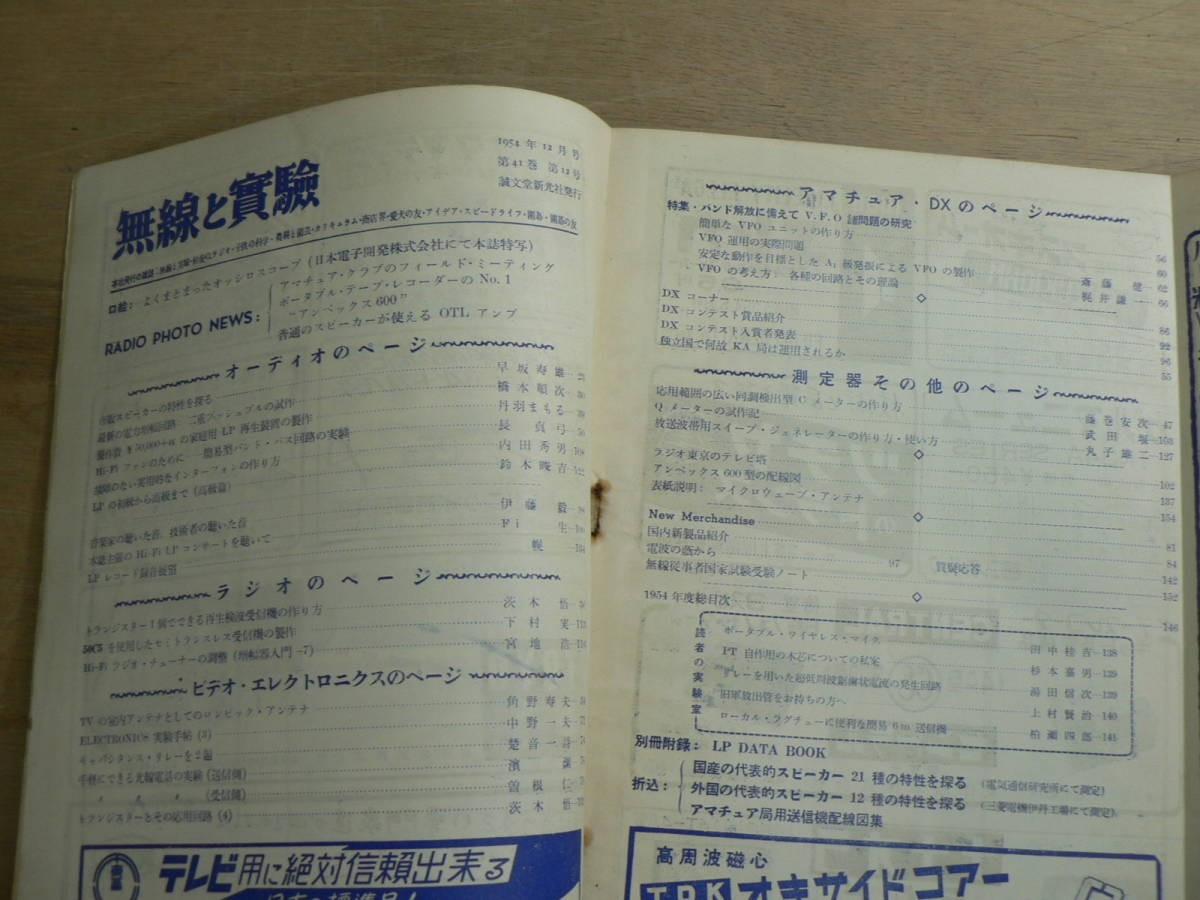 1954年12月号
第41巻 第12号
誠文堂新光社発行
無線と實驗
口絵:よくまとまったオッシロスコープ (日本電子開発株式会社にて本誌特写)
RADIO PHOTO NEWS:
アマチュア・クラブのフィールド・ミーティング
ポータブル・テープ・レコーダーの No.1
“アンペックス600”
普通のスピーカーが使える OTL アンプ
オーディオのページ
市販スピーカーの特性を探る 早坂寿雄
最新の電力増幅回路 二重プッシュプルの試作 橋本順次
製作費 ¥50,000+α の家庭用 LP 再生装置の製作 丹羽まもる
Hi-Fi ファンのために 簡易型バンド・パス回路の実験 長真弓
故障のない実用的なインターフォンの作り方 内田秀男
LP の初級から高級まで (高級篇) 鈴木
音楽家の聴いた音、技術者の聴いた音 伊藤毅
本誌主催の Hi-Fi LP コンサートを聴いて Fi生
LP レコード録音展望 幌
ラジオのページ
トランジスター1個でできる再生検波受信機の作り方 茨木悟
50C5 を使用したセミトランスレス受信機の製作 下村実
Hi-Fi ラジオ・チューナーの調整 (増幅器入門-7) 宮地浩
ビデオ・エレクトロニクスのページ
TV の室内アンテナとしてのロンビック・アンテナ 角野寿夫
ELECTRONICS 実験手帖 (3) 中野一夫
キャパシタンス・リレーを2題 楚音一
手軽にできる光線電話の実験 (送信側) 濱
〃 〃 〃 (受信側) 曽根仁
トランジスターとその応用回路 (4) 茨木悟
テレビ用に絶対信頼出来る
アマチュア・DXのページ
特集・バンド解放に備えて V.F.O 諸問題の研究
簡単な VFO ユニットの作り方 56
VFO 運用の実際問題 60
安定な動作を目標とした A₁ 級発振による VFO の製作 斎藤健 62
VFO の考え方: 各種の回路とその理論 梶井謙一 66
DX コーナー 86
DX コンテスト賞品紹介 92
DX コンテスト入賞者発表 96
独立国で何故 KA 局は運用されるか 55
測定器その他のページ
応用範囲の広い同調検出型 C メーターの作り方 藤巻安次 47
Q メーターの試作記 武田 103
放送波帯用スイープ・ジェネレーターの作り方・使い方 丸子雄二 127
ラジオ東京のテレビ塔 102
アンペックス 600型の配線図 137
表紙説明: マイクロウェーブ・アンテナ 154
New Merchandise 81
国内新製品紹介 84
電波の蔭から 97 質疑応答 142
無線従事者国家試験受験ノート 152
1954年度総目次 146
読者の実験室
ポータブル・ワイヤレス・マイク 田中桂吉 138
PT 自作用の木芯についての私案 杉本嘉男 139
リレーを用いた超低周波鋸歯状電流の発生回路 湯田信次 139
旧軍放出管をお持ちの方へ 上村賢治 140
ローカル・ラグチューに便利な簡易 6m 送信機 柏瀬四郎 141
別冊附録: LP DATA BOOK
折込:
国産の代表的スピーカー 21 種の特性を探る (電気通信研究所にて測定)
外国の代表的スピーカー 12 種の特性を探る (三菱電機伊丹工場にて測定)
アマチュア局用送信機配線図集
高周波磁心
TDK オキサイドコアー